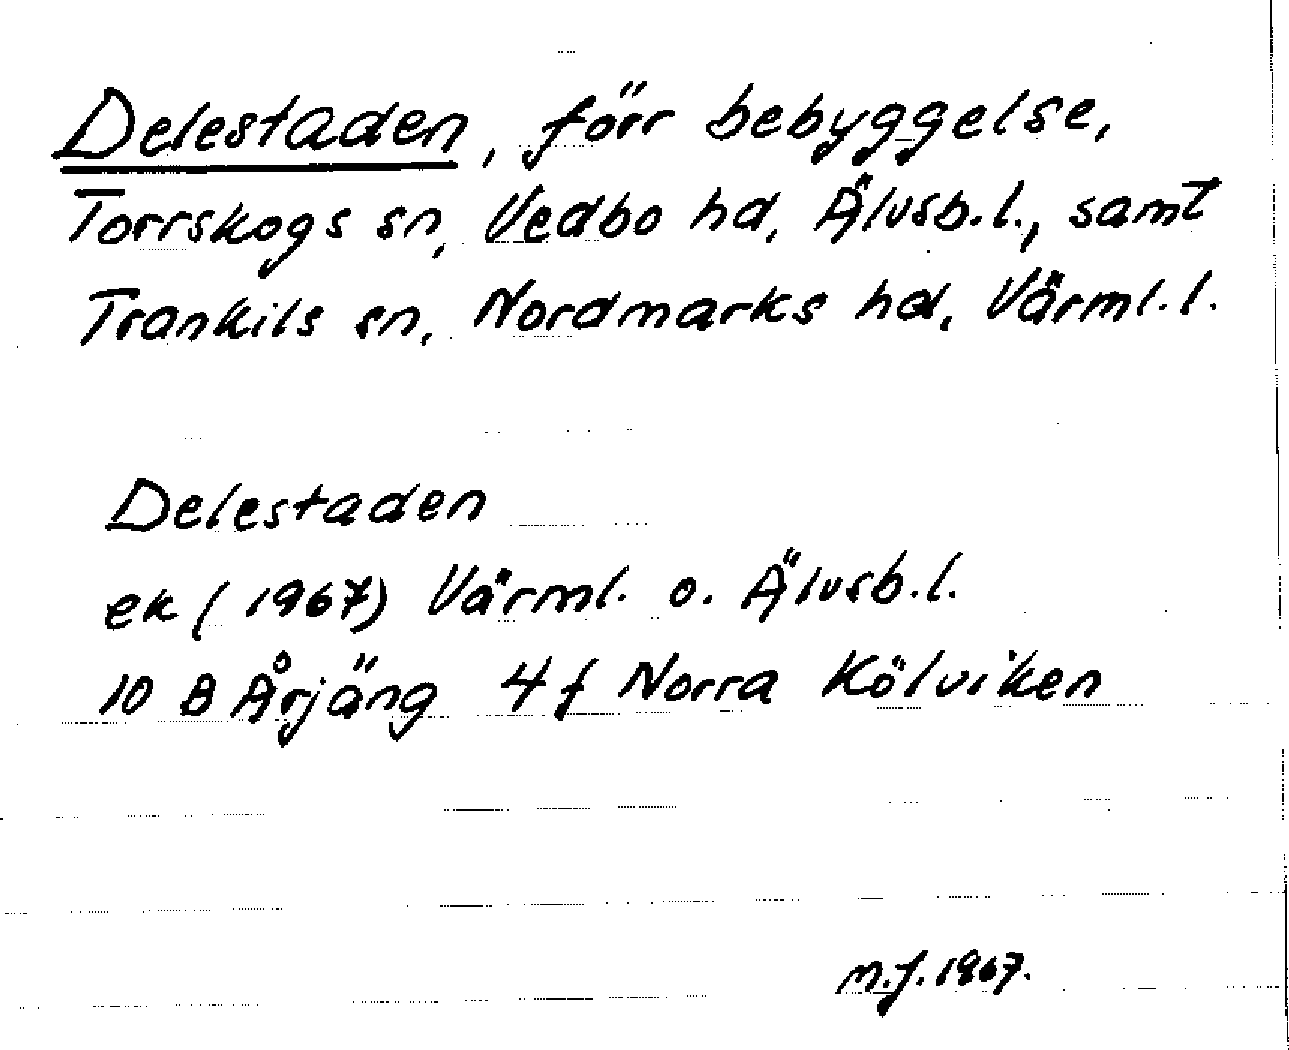 Delestaden, förr bebyggelse,
Torrskogs sn, Vedbo hd, Älvsb.l., samt
Trankils sn, Nordmarks hd, Värml.l.
Delestaden
ek (1967) Värml. o. Älvsb.l.
10 B Årjäng 4f Norra Kölviken
m.f. 1967.